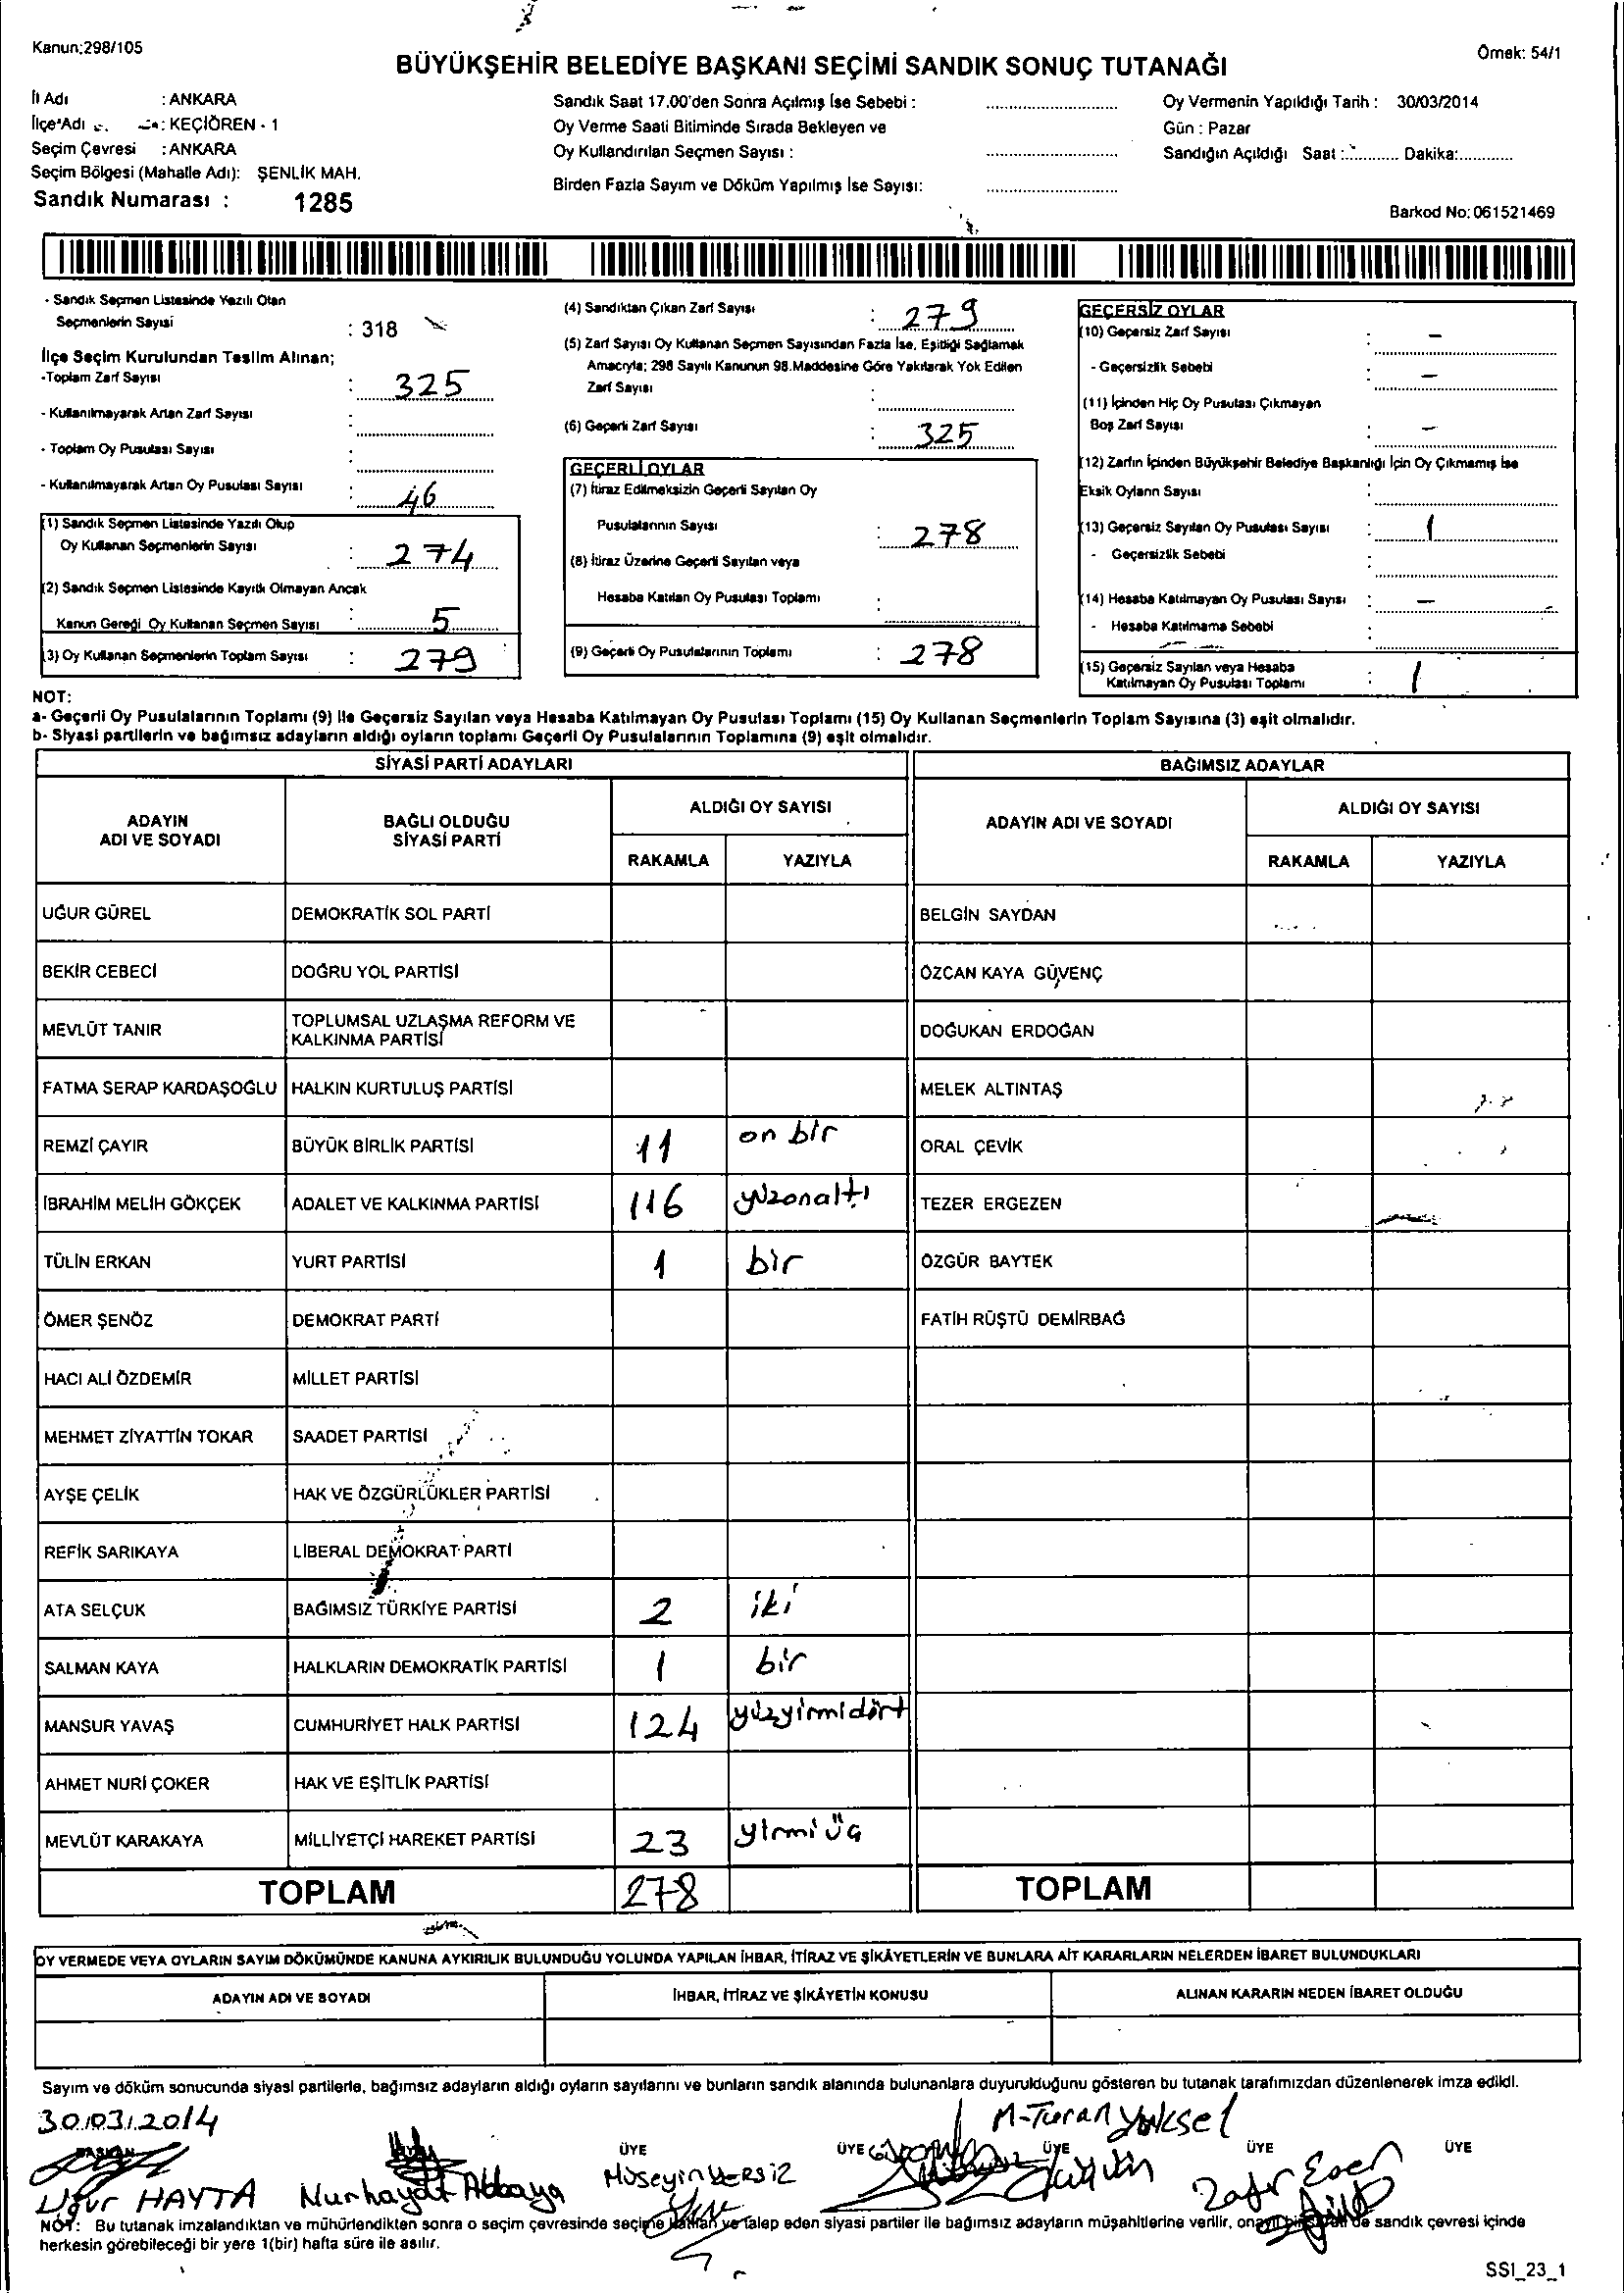 Kanun:298/105
Örnek: 54/1
BÜYÜKŞEHİR BELEDİYE BAŞKANI SEÇİMİ SANDIK SONUÇ TUTANAĞI
İl Adı : ANKARA
İlçe Adı : KEÇİÖREN - 1
Seçim Çevresi : ANKARA
Seçim Bölgesi (Mahalle Adı): ŞENLİK MAH.
Sandık Numarası : 1285
Sandık Saat 17.00'den Sonra Açılmış İse Sebebi :
Oy Verme Saati Bitiminde Sırada Bekleyen ve
Oy Kullandırılan Seçmen Sayısı :
Birden Fazla Sayım ve Döküm Yapılmış İse Sayısı:
Oy Vermenin Yapıldığı Tarih : 30/03/2014
Gün : Pazar
Sandığın Açıldığı Saat :............ Dakika:............
Barkod No: 061521469
- Sandık Seçmen Listesinde Yazılı Olan
Seçmenlerin Sayısı : 318
İlçe Seçim Kurulundan Teslim Alınan;
-Toplam Zarf Sayısı : 325
- Kullanılmayarak Artan Zarf Sayısı :
- Toplam Oy Pusulası Sayısı :
- Kullanılmayarak Artan Oy Pusulası Sayısı : 46
(1) Sandık Seçmen Listesinde Yazılı Olup
Oy Kullanan Seçmenlerin Sayısı : 274
(2) Sandık Seçmen Listesinde Kayıtlı Olmayan Ancak
Kanun Gereği Oy Kullanan Seçmen Sayısı : 5
(3) Oy Kullanan Seçmenlerin Toplam Sayısı : 279
(4) Sandıktan Çıkan Zarf Sayısı : 279
(5) Zarf Sayısı Oy Kullanan Seçmen Sayısından Fazla İse, Eşitliği Sağlamak
Amacıyla; 298 Sayılı Kanunun 98.Maddesine Göre Yakılarak Yok Edilen
Zarf Sayısı :
(6) Geçerli Zarf Sayısı : 325
GEÇERLİ OYLAR
(7) İtiraz Edilmeksizin Geçerli Sayılan Oy
Pusulalarının Sayısı : 278
(8) İtiraz Üzerine Geçerli Sayılan veya
Hesaba Katılan Oy Pusulası Toplamı :
(9) Geçerli Oy Pusulalarının Toplamı : 278
GEÇERSİZ OYLAR
(10) Geçersiz Zarf Sayısı : -
- Geçersizlik Sebebi : -
(11) İçinden Hiç Oy Pusulası Çıkmayan
Boş Zarf Sayısı : -
(12) Zarfın İçinden Büyükşehir Belediye Başkanlığı İçin Oy Çıkmamış İse
Eksik Oyların Sayısı :
(13) Geçersiz Sayılan Oy Pusulası Sayısı : 1
- Geçersizlik Sebebi
(14) Hesaba Katılmayan Oy Pusulası Sayısı : -
- Hesaba Katılmama Sebebi :
(15) Geçersiz Sayılan veya Hesaba
Katılmayan Oy Pusulası Toplamı : 1
NOT:
a- Geçerli Oy Pusulalarının Toplamı (9) ile Geçersiz Sayılan veya Hesaba Katılmayan Oy Pusulası Toplamı (15) Oy Kullanan Seçmenlerin Toplam Sayısına (3) eşit olmalıdır.
b- Siyasi partilerin ve bağımsız adayların aldığı oyların toplamı Geçerli Oy Pusulalarının Toplamına (9) eşit olmalıdır.
SİYASİ PARTİ ADAYLARI
BAĞIMSIZ ADAYLAR
ADAYIN ADI VE SOYADI
BAĞLI OLDUĞU SİYASİ PARTİ
ALDIĞI OY SAYISI
RAKAMLA YAZIYLA
ADAYIN ADI VE SOYADI
ALDIĞI OY SAYISI
RAKAMLA YAZIYLA
UĞUR GÜREL DEMOKRATİK SOL PARTİ BELGİN SAYDAN
BEKİR CEBECİ DOĞRU YOL PARTİSİ ÖZCAN KAYA GÜVENÇ
MEVLÜT TANIR TOPLUMSAL UZLAŞMA REFORM VE KALKINMA PARTİSİ DOĞUKAN ERDOĞAN
FATMA SERAP KARDAŞOĞLU HALKIN KURTULUŞ PARTİSİ MELEK ALTINTAŞ
REMZİ ÇAYIR BÜYÜK BİRLİK PARTİSİ 11 on bir ORAL ÇEVİK
İBRAHİM MELİH GÖKÇEK ADALET VE KALKINMA PARTİSİ 116 yüzonaltı TEZER ERGEZEN
TÜLİN ERKAN YURT PARTİSİ 1 bir ÖZGÜR BAYTEK
ÖMER ŞENÖZ DEMOKRAT PARTİ FATİH RÜŞTÜ DEMİRBAĞ
HACI ALİ ÖZDEMİR MİLLET PARTİSİ
MEHMET ZİYATTİN TOKAR SAADET PARTİSİ
AYŞE ÇELİK HAK VE ÖZGÜRLÜKLER PARTİSİ
REFİK SARIKAYA LİBERAL DEMOKRAT PARTİ
ATA SELÇUK BAĞIMSIZ TÜRKİYE PARTİSİ 2 iki
SALMAN KAYA HALKLARIN DEMOKRATİK PARTİSİ 1 bir
MANSUR YAVAŞ CUMHURİYET HALK PARTİSİ 124 yüzyirmidört
AHMET NURİ ÇOKER HAK VE EŞİTLİK PARTİSİ
MEVLÜT KARAKAYA MİLLİYETÇİ HAREKET PARTİSİ 23 yirmi üç
TOPLAM 278 TOPLAM
OY VERMEDE VEYA OYLARIN SAYIM DÖKÜMÜNDE KANUNA AYKIRILIK BULUNDUĞU YOLUNDA YAPILAN İHBAR, İTİRAZ VE ŞİKÂYETLERİN VE BUNLARA AİT KARARLARIN NELERDEN İBARET BULUNDUKLARI
ADAYIN ADI VE SOYADI İHBAR, İTİRAZ VE ŞİKÂYETİN KONUSU ALINAN KARARIN NEDEN İBARET OLDUĞU
Sayım ve döküm sonucunda siyasi partilerle, bağımsız adayların aldığı oyların sayılarını ve bunların sandık alanında bulunanlara duyurulduğunu gösteren bu tutanak tarafımızdan düzenlenerek imza edildi.
30.03.2014
M-Turan Yüksel
BAŞKAN ÜYE ÜYE ÜYE ÜYE ÜYE
Uğur HAYTA Nurhayat Hüseyin Zafer
NOT: Bu tutanak imzalandıktan ve mühürlendikten sonra o seçim çevresinde seçime katılan ve talep eden siyasi partiler ile bağımsız adayların müşahitlerine verilir, de sandık çevresi içinde
herkesin görebileceği bir yere 1(bir) hafta süre ile asılır.
SSI_23_1